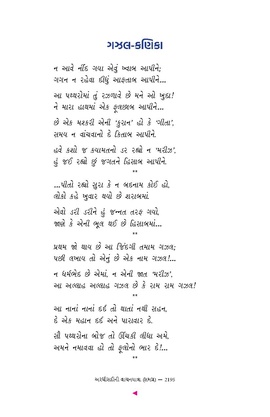 ગઝલ-કણિકા
ન આવે નીંદ ગવા એવું ખ્વાબ આપીને;
ગગન ન રહેવા દીધું આફતાબ આપીને...
આ પથ્થરોમાં તું રઝળાવે છે મને ઓ ખુદા!
ને મારા હાથમાં એક ફૂલછાબ આપીને...
છે એક મશ્કરી એની 'કુરાન' હો કે 'ગીતા',
સમય ન વાંચવાનો દે કિતાબ આપીને.
હવે કશો જ કયામતનો ડર રહ્યો ન 'મરીઝ',
હું જઈ રહ્યો છું જગતને હિસાબ આપીને.
**
...પીતો રહ્યો સુરા કે ન બદનામ કોઈ હો,
લોકો કહે ખુવાર થયો છે શરાબમાં.
એવો ડરી ડરીને હું જન્નત તરફ ગયો,
જાણે કે એની ભૂલ થઈ છે હિસાબમાં...
**
પ્રથમ જો થાય છે આ જિંદગી તમામ ગઝલ;
પછી લખાય તો એનું છે એક નામ ગઝલ!...
ન ધર્મભેદ છે એમાં, ન એની જાત 'મરીઝ',
આ અલ્લાહ અલ્લાહ ગઝલ છે કે રામ રામ ગઝલ!
**
આ નાનાં નાનાં દર્દ તો થાતાં નથી સહન,
દે એક મહાન દર્દ અને પારાવાર દે.
સૌ પથ્થરોના બોજ તો ઊંચકી લીધા અમે,
અમને નમાવવા હો તો ફૂલોનો ભાર દે!...
**
અરધીસદીની વાચનયાત્રા — 2195